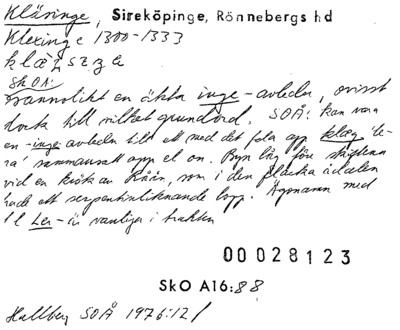 Kläringe, Sireköpinge, Rönnebergs hd
Klexinge 1300-1333
SkOA:
Sannolikt en äkta inge-avledn, ovisst
dock till vilket grundord. SOÅ: kan vara
en -inge-avledn till ett med det fda app klæg 'le-
ra' sammansatt app el on. Byn låg före skiftena
vid en krök av Råån, som i den flacka ådalen
hade ett serpentinliknande lopp. Ägonamn med
Ler- är vanliga i trakten
00028123
SkO A16:88
Hallberg SOÅ 1976:121